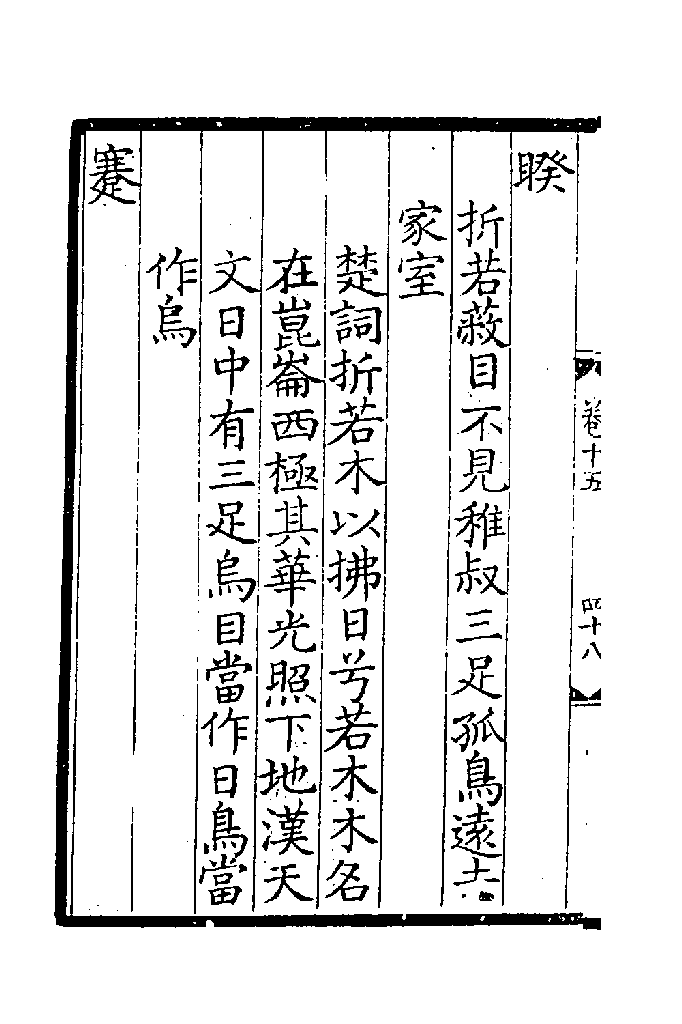 睽
折若蔽目不見稚叔三足孤鳥遠去
家室
楚詞折若木以拂日兮若木木名
在崑崙西極其華光照下地漢天
文日中有三足烏目當作日鳥當
作烏
蹇
卷十五
四十八